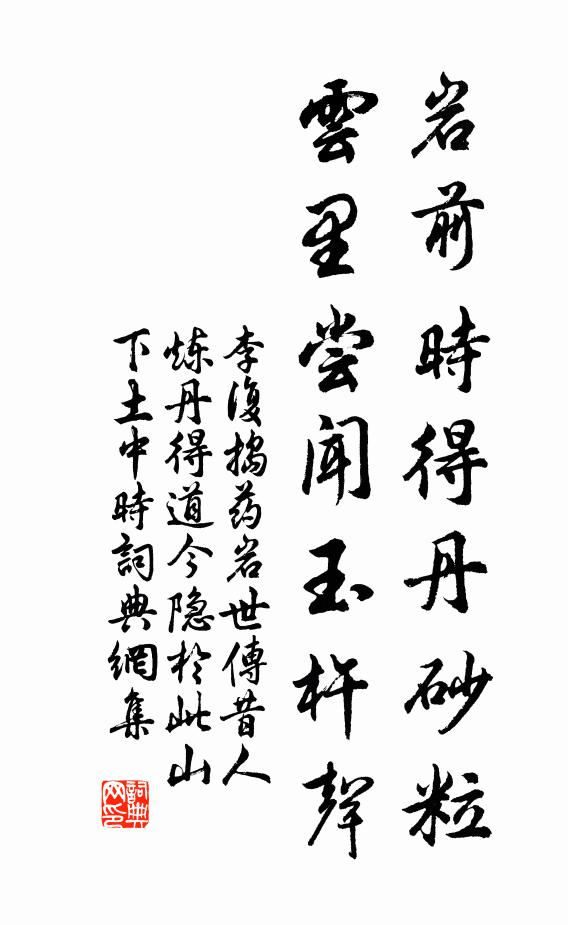 岩前時得丹砂粒
雲里尝闻玉杵聲
李復搗药岩世傳昔人
炼丹得道今隐於此山
下土中時詞典網集
詞典
网印